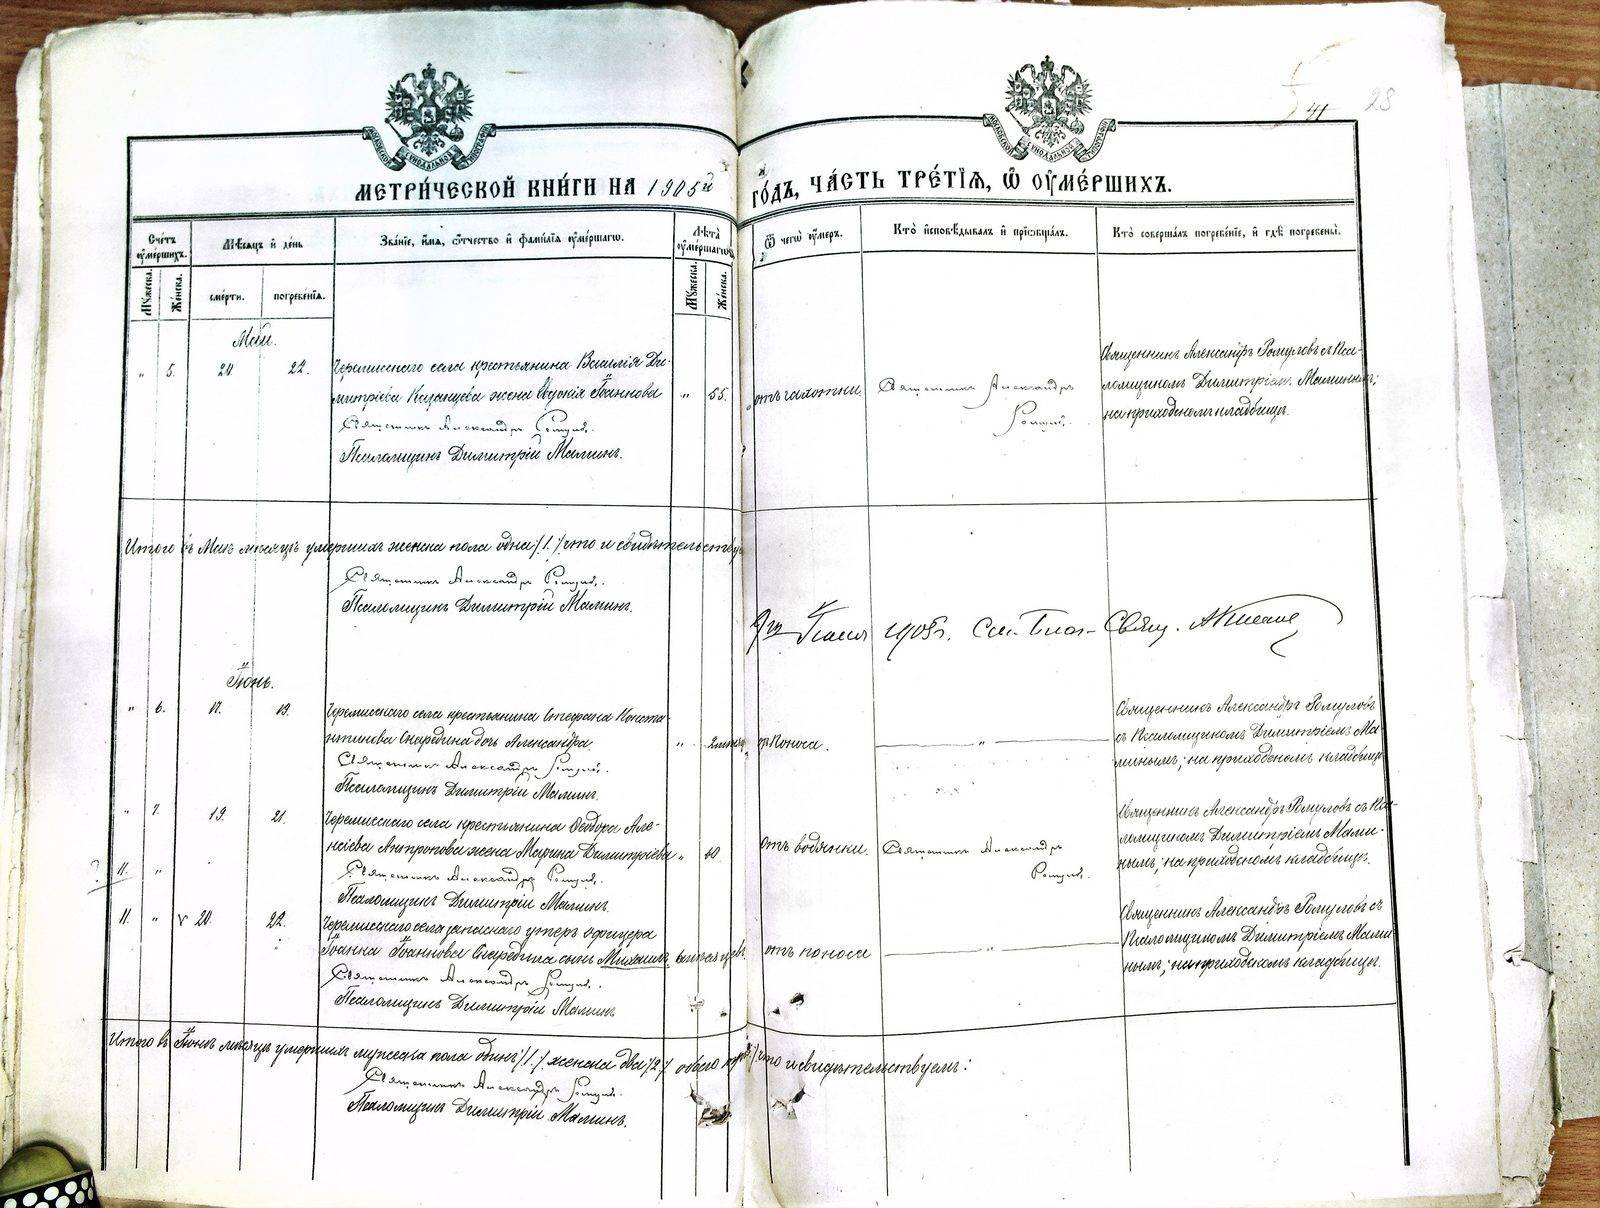 41 28
МЕТРИ́ЧЕСКОЙ КНИ́ГИ НА 1905й ГО́ДЪ, ЧА́СТЬ ТРЕ́ТІЯ, Ѽ ОУМЕ́РШИХЪ.
Сче́тъ оуме́ршихъ.
Мѣ́сяцъ и де́нь
Зва́ніе, и́мя, о́тчество и фами́лія оуме́ршагѡ.
Лѣ́та оуме́ршагѡ
Ѿ чегѡ̀ оу́меръ.
Кто̀ исповѣ́дывалъ и пріѡбща́лъ.
Кто̀ соверша́лъ погребе́ніе, и гдѣ̀ погребены̀.
Му́жеска.
Же́нска.
сме́рти.
погребе́нія.
Му́жеска.
Же́нска.
Май.
„ 5. 20 22. Черемисскаго села крестьянина Василія Ди-
митріева Казанцева жена Евдокія Іоаннова „ 55. отъ чахотки.
Священникъ Александръ Ромулов.
Псаломщикъ Димитрій Маминъ.
Священникъ Александръ
Ромулов.
Священникъ Александръ Ромуловъ съ Пса-
ломщикомъ Димитріемъ Маминымъ;
на приходскомъ кладбищѣ.
Итого въ Маѣ мѣсяцѣ умершихъ женска пола одна /1./ что и свидѣтельству
Священникъ Александръ Ромулов.
Псаломщикъ Димитрій Маминъ.
Іюня 1905 г. Свящ.
Іюнь.
„ 6. 17. 19. Черемисскаго села крестьянина Стефана Конста-
нтинова Снаредина дочь Александра. „ поноса. „
Священникъ Александръ Ромулов.
Псаломщикъ Димитрій Маминъ.
Священникъ Александръ Ромуловъ
съ Псаломщикомъ Димитріемъ Ма-
минымъ; на приходскомъ кладбищѣ
„ 7. 19. 21. Черемисскаго села крестьянина Ѳеодора Але-
ксіева Антропова жена Марина Димитріева „ 40. отъ водянки.
? 11. „
Священникъ Александръ Ромулов.
Псаломщикъ Димитрій Маминъ.
Священникъ Александръ
Ромулов.
Священникъ Александръ Ромуловъ съ Пса-
ломщикомъ Димитріемъ Мами-
нымъ; на приходскомъ кладбищѣ.
11. „ v 20. 22. Черемисскаго села запаснаго унтеръ офицера
Іоанна Іоаннова Снаредина сынъ Михаилъ отъ поноса „
Священникъ Александръ Ромулов.
Псаломщикъ Димитрій Маминъ
Священникъ Александръ Ромуловъ съ
Псаломщикомъ Димитріемъ Мами
нымъ; на приходскомъ кладбищѣ.
Итого въ Іюнѣ мѣсяцѣ умершихъ мужеска пола одинъ /1./ женска два /2/ обоего что и свидѣтельствуемъ:
Священникъ Александръ Ромулов.
Псаломщикъ Димитрій Маминъ.